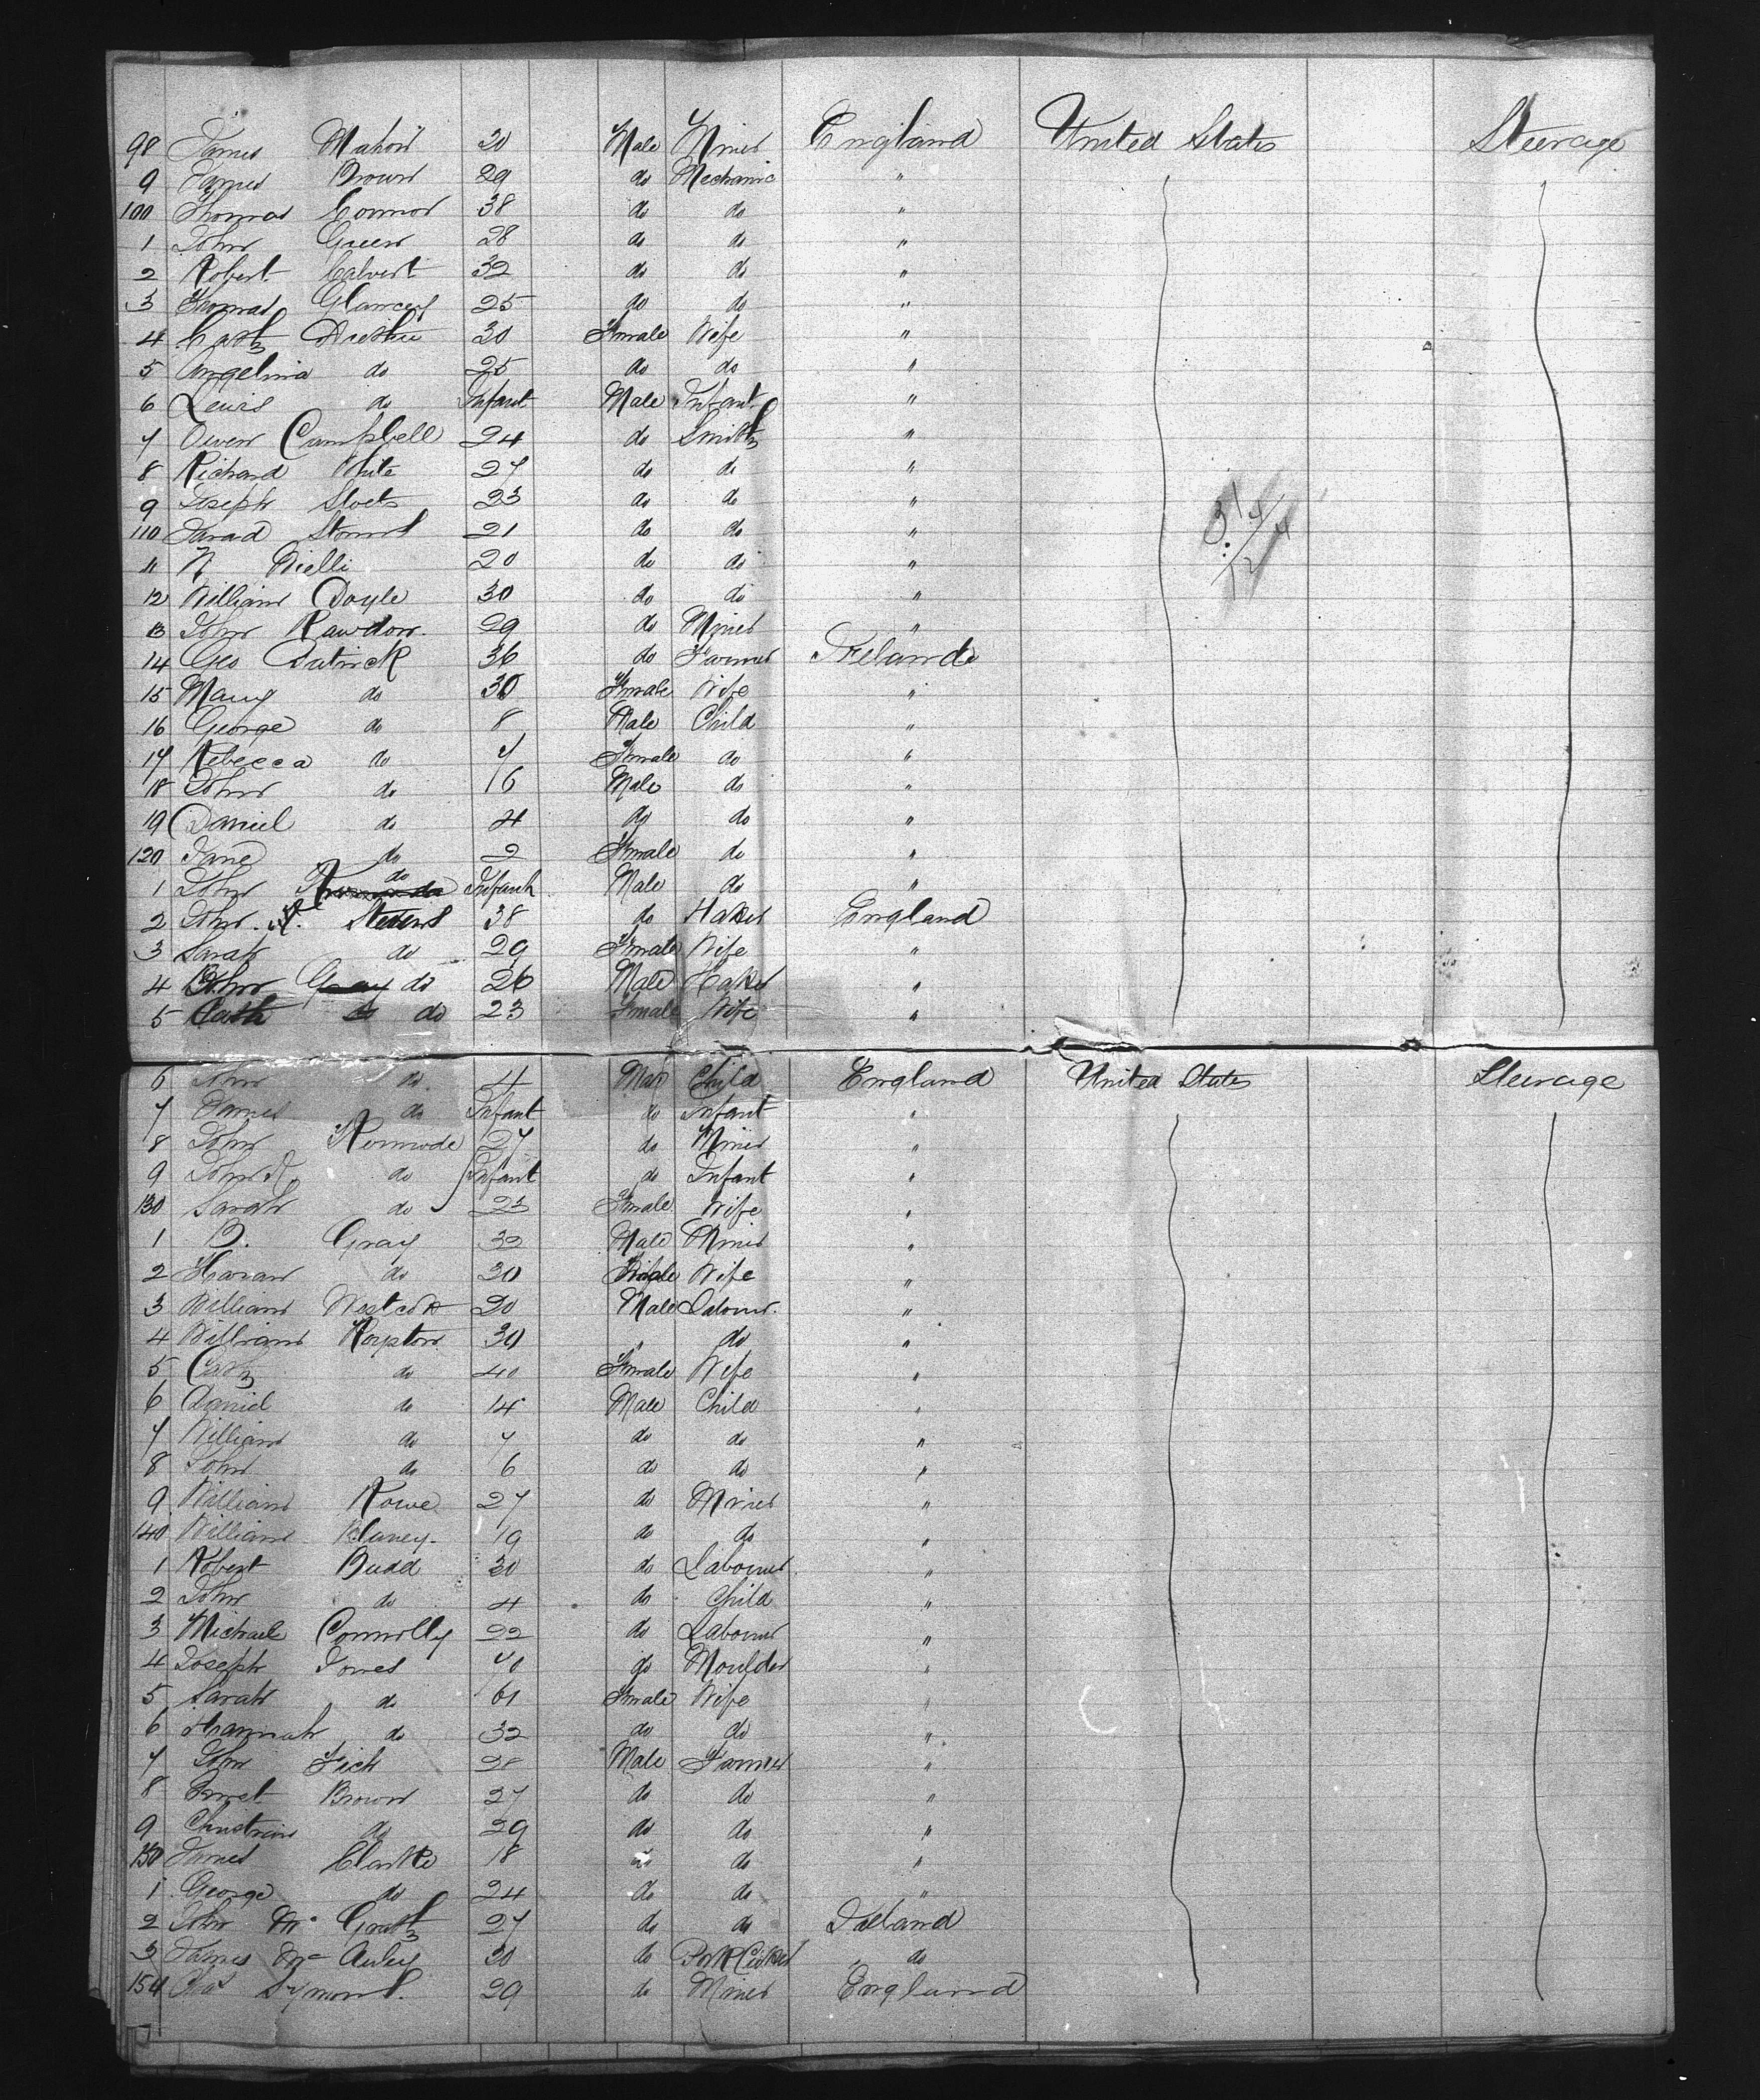 98 James Mahon 20 Male Miner England United States Steerage
9 James Brown 29 do Mechanic "
100 Thomas Connor 38 do do "
1 John Green 28 do do "
2 Robert Calvert 32 do do "
3 Thomas Glancey 25 do do "
4 Cath 30 Female Wife "
5 Angelina do 25 do do "
6 Lewis do Infant Male Infant "
7 Owen Campbell 24 do Smith "
8 Richard White 27 do do "
9 Joseph 23 do do "
110 21 do do "
11 N Bielli 20 do do "
12 William Doyle 30 do do "
13 John Rawdon. 29 do Miner "
14 Geo Patrick 36 do Farmer Ireland
15 Mary do 30 Female Wife "
16 George do 8 Male Child "
17 Rebecca do 7 Female do "
18 John do 6 Male do "
19 Daniel do 4 do do "
120 Jane do 2 Female do "
1 John do Infant Male do "
2 John Stevens 38 do England
3 Sarah do 29 Female Wife "
4 John Gray do 26 Male "
5 Cath do do 23 Female Wife "
6 John do 4 Male Child England United States Steerage
7 James do Infant do Infant "
8 John Kermode 27 do Miner "
9 John do Infant do Infant "
130 Sarah do 23 Female Wife "
1 B. Gray 32 Male Miner "
2 do 30 Wife "
3 William Westcott 20 Male Labour. "
4 William 30 " do "
5 Cath do 40 Female Wife "
6 Daniel do 14 Male Child "
7 William do 7 do do "
8 John do 6 do do "
9 William Rowe 27 do Miner "
140 William Blaney 19 do do "
1 Robert Budd 30 do Labourer "
2 John do 4 do Child "
3 Michael Connolly 22 do Labourer "
4 Joseph Jones 40 do Moulder "
5 Sarah do 61 Female Wife "
6 Hannah do 32 do do "
7 John 28 Male Farmer "
8 Ernest Brown 27 do do "
9 Christian do 29 do do "
150 James Clarke 18 do do "
1 George do 24 do do "
2 John Mc Grath 27 do do Ireland
3 James Mc 30 do do
154 Symons. 29 do Miner England